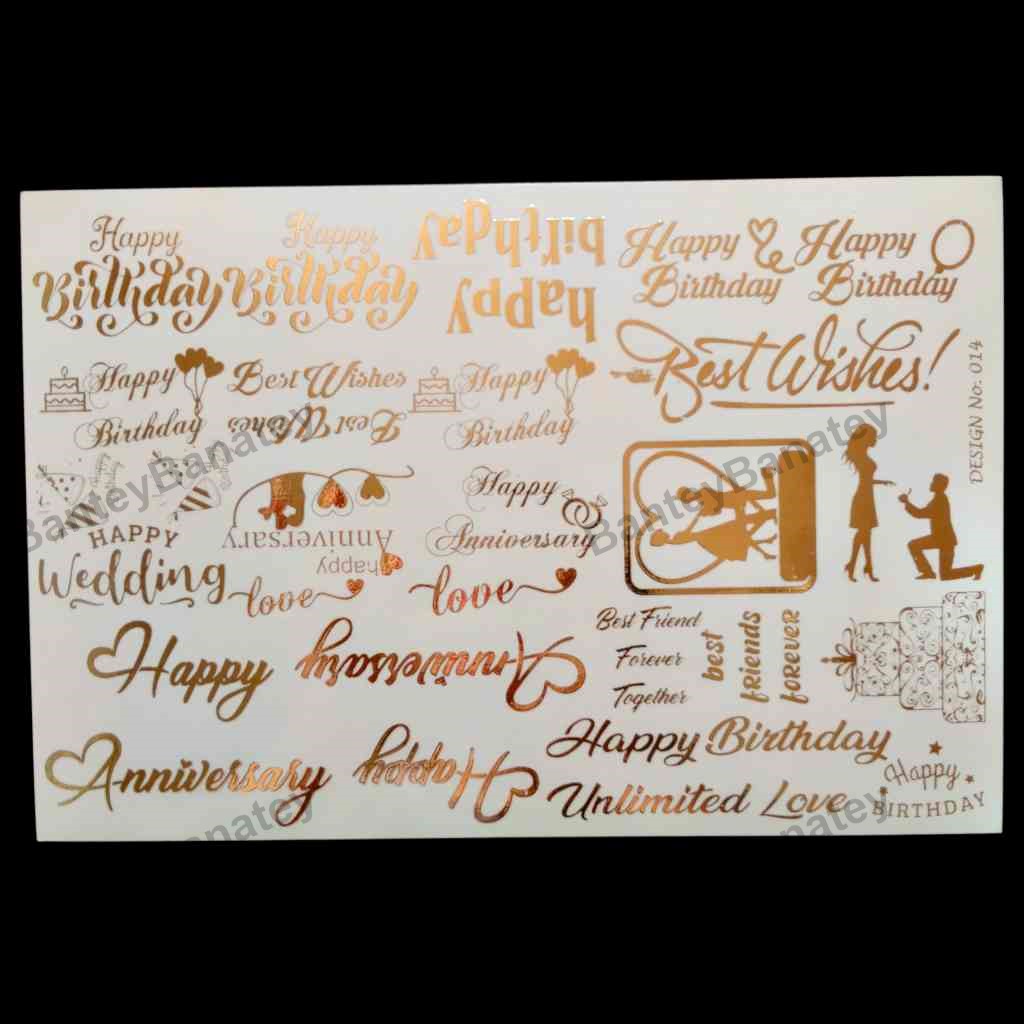 Happy
Birthday
Happy
Birthday
happy
birthday
Happy
Birthday
Happy
Birthday
Happy
Birthday
Best Wishes
Best Wishes
Happy
Birthday
Best Wishes!
DESIGN No: 014
HAPPY
Wedding
happy
Anniversary
Happy
Anniversary
love
love
Happy
Anniversary
Best Friend
Forever
Together
best
friends
forever
Anniversary
Happy
Happy Birthday
Unlimited Love
Happy
BIRTHDAY
BanteyBanatey
BanteyBanatey
Banatey
Banatey